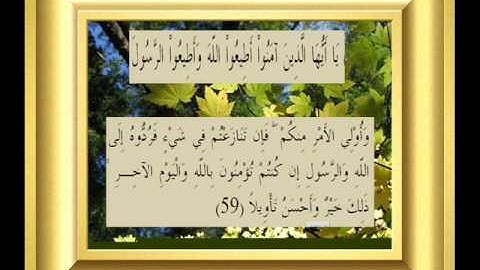 يَا أَيُّهَا الَّذِينَ آمَنُواْ أَطِيعُواْ اللّهَ وَأَطِيعُواْ الرَّسُولَ
وَأُوْلِي الأَمْرِ مِنكُمْ فَإِن تَنَازَعْتُمْ فِي شَيْءٍ فَرُدُّوهُ إِلَى
اللّهِ وَالرَّسُولِ إِن كُنتُمْ تُؤْمِنُونَ بِاللّهِ وَالْيَوْمِ الآخِرِ
ذَلِكَ خَيْرٌ وَأَحْسَنُ تَأْوِيلاً (59)